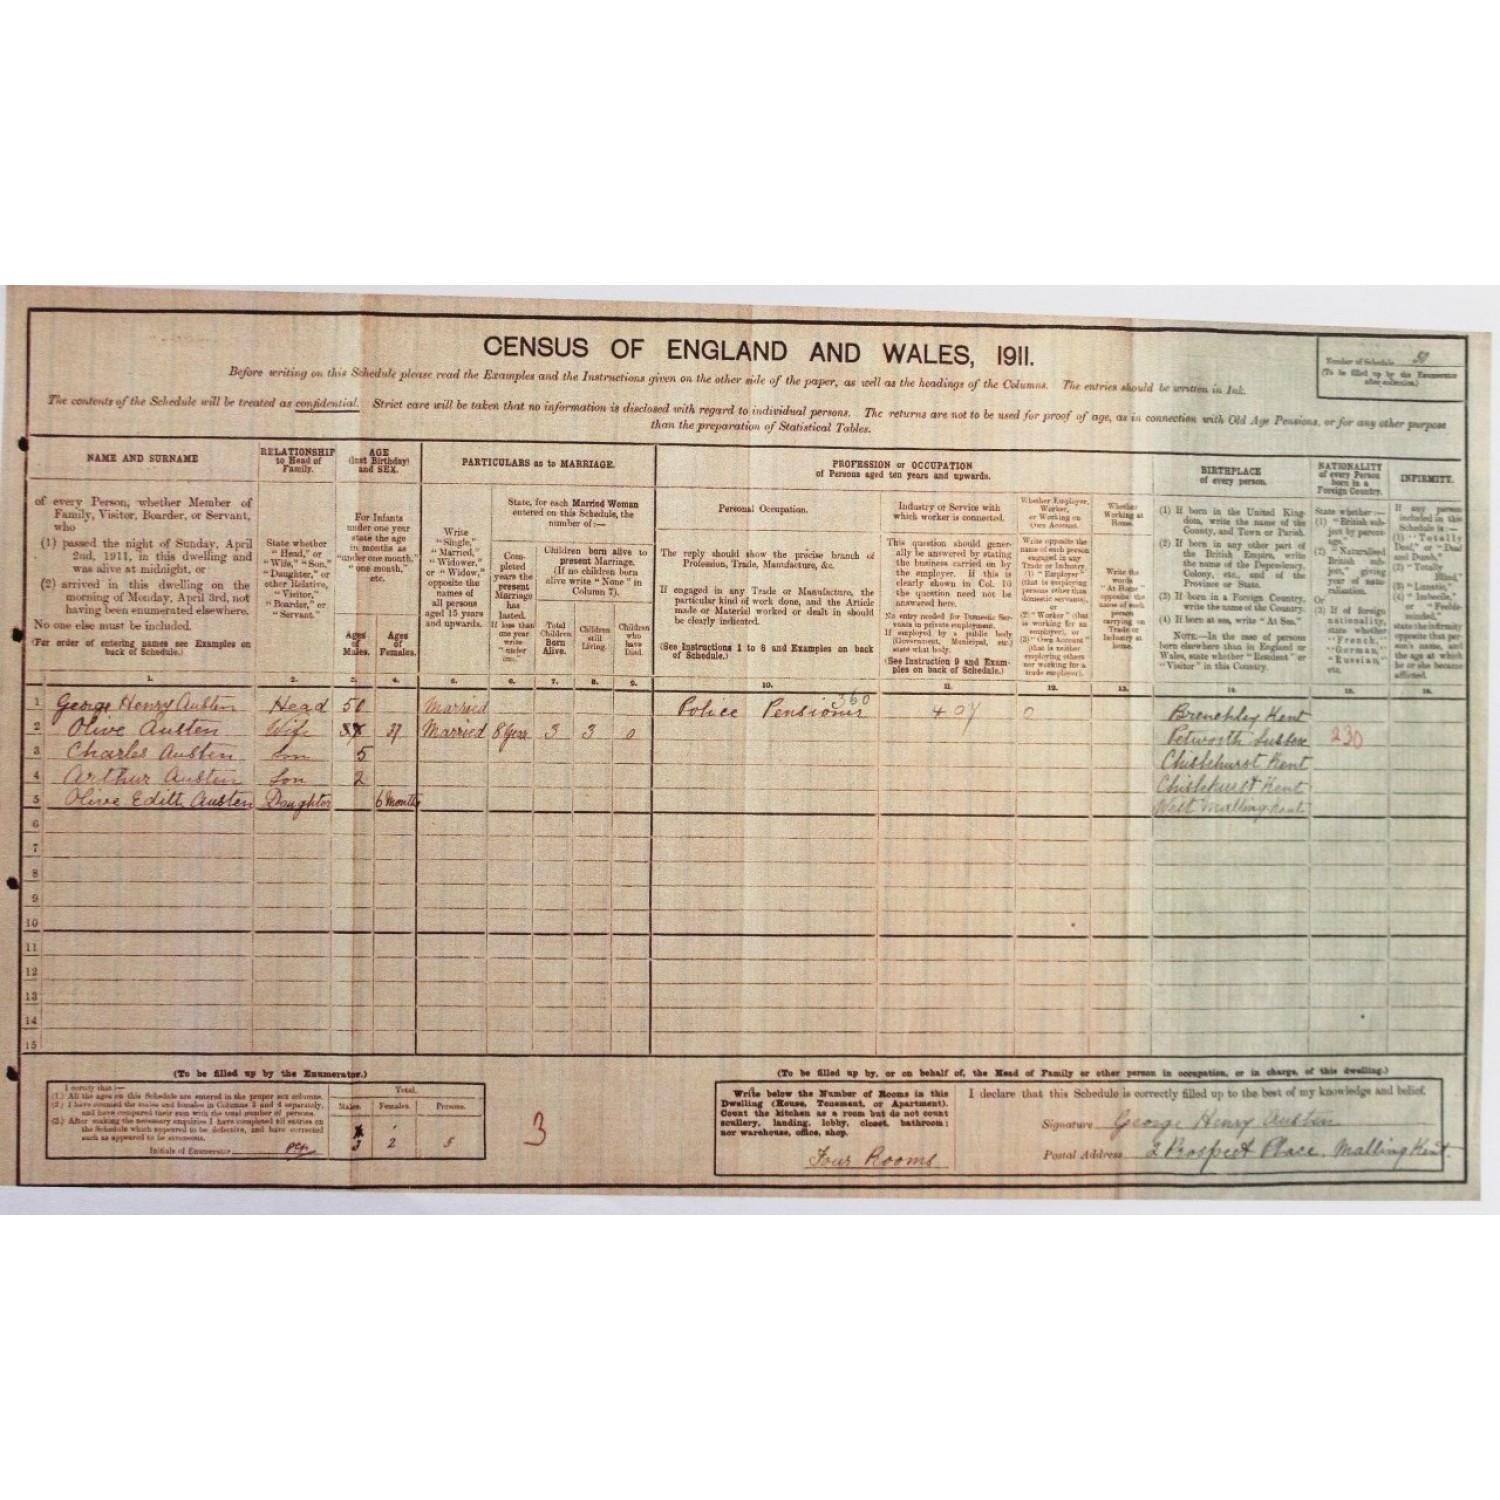 CENSUS OF ENGLAND AND WALES, 1911.
Number of Schedule
(To be filled up by the Enumerator
after collection.)
Before writing on this Schedule please read the Examples and the Instructions given on the other side of the paper, as well as the headings of the Columns. The entries should be written in Ink.
The contents of the Schedule will be treated as confidential. Strict care will be taken that no information is disclosed with regard to individual persons. The returns are not to be used for proof of age, as in connection with Old Age Pensions, or for any other purpose
than the preparation of Statistical Tables.
NAME AND SURNAME
of every Person, whether Member of
Family, Visitor, Boarder, or Servant,
who
(1) passed the night of Sunday, April
2nd, 1911, in this dwelling and
was alive at midnight, or
(2) arrived in this dwelling on the
morning of Monday, April 3rd, not
having been enumerated elsewhere.
No one else must be included.
(For order of entering names see Examples on
back of Schedule.)
RELATIONSHIP
to Head of
Family.
State whether
"Head," or
"Wife," "Son,"
"Daughter," or
other Relative,
"Visitor,"
"Boarder," or
"Servant."
AGE
(last Birthday)
and SEX.
For Infants
under one year
state the age
in months as
"under one month,"
"one month,"
etc.
Ages
of
Males.
Ages
of
Females.
PARTICULARS as to MARRIAGE.
Write
"Single,"
"Married,"
"Widower,"
or "Widow,"
opposite the
names of
all persons
aged 15 years
and upwards.
State, for each Married Woman
entered on this Schedule, the
number of:—
Completed
years the
present
Marriage
has
lasted.
If less than
one year
write
"under
one."
Children born alive to
present Marriage.
(If no children born
alive write "None" in
Column 7).
Total
Children
Born
Alive.
Children
still
Living.
Children
who
have
Died.
PROFESSION or OCCUPATION
of Persons aged ten years and upwards.
Personal Occupation.
The reply should show the precise branch of
Profession, Trade, Manufacture, &c.
If engaged in any Trade or Manufacture, the
particular kind of work done, and the Article
made or Material worked or dealt in should
be clearly indicated.
(See Instructions 1 to 8 and Examples on back
of Schedule.)
Industry or Service with
which worker is connected.
This question should generally
be answered by stating
the business carried on by
the employer. If this is
clearly shown in Col. 10
the question need not be
answered here.
No entry needed for Domestic Servants
in private employment.
If employed by a public body
(Government, Municipal, etc.)
state what body.
(See Instruction 9 and Examples
on back of Schedule.)
Whether Employer,
Worker,
or Working on
Own Account.
Write opposite the
name of each person
engaged in any
Trade or Industry,
(1) "Employer"
(that is employing
persons other than
domestic servants),
or
(2) "Worker" (that
is working for an
employer), or
(3) "Own Account"
(that is neither
employing others
nor working for a
trade employer).
Whether
Working at
Home.
Write the
words
"At Home"
opposite the
name of each
person
carrying on
Trade or
Industry at
home.
BIRTHPLACE
of every person.
(1) If born in the United Kingdom,
write the name of the
County, and Town or Parish.
(2) If born in any other part of
the British Empire, write
the name of the Dependency,
Colony, etc., and of the
Province or State.
(3) If born in a Foreign Country,
write the name of the Country.
(4) If born at sea, write "At Sea."
NOTE.—In the case of persons
born elsewhere than in England or
Wales, state whether "Resident" or
"Visitor" in this Country.
NATIONALITY
of every Person
born in a
Foreign Country.
State whether:—
(1) "British subject
by parentage,"
(2) "Naturalised
British subject,"
giving
year of naturalisation.
Or
(3) If of foreign
nationality,
state whether
"French,"
"German,"
"Russian,"
etc.
INFIRMITY.
If any person
included in this
Schedule is:—
(1) "Totally
Deaf," or "Deaf
and Dumb,"
(2) "Totally
Blind,"
(3) "Lunatic,"
(4) "Imbecile,"
or "Feeble-minded,"
state the infirmity
opposite that person's
name, and
the age at which
he or she became
afflicted.
1. 2. 3. 4. 5. 6. 7. 8. 9. 10. 11. 12. 13. 14. 15. 16.
1 George Henry Austen Head 50 Married Police Pensioner 360 407 0 Brenchley Kent
2 Olive Austen Wife 37 Married 8 Years 3 3 0 Petworth Sussex 230
3 Charles Austen Son 5 Chislehurst Kent
4 Arthur Austen Son 2 Chislehurst Kent
5 Olive Edith Austen Daughter 6 Months West Malling Kent
6
7
8
9
10
11
12
13
14
15
(To be filled up by the Enumerator.)
I certify that:—
(1.) All the ages on this Schedule are entered in the proper sex columns.
(2.) I have counted the males and females in Columns 3 and 4 separately,
and have compared their sum with the total number of persons.
(3.) After making the necessary enquiries I have completed all entries on
the Schedule which appeared to be defective, and have corrected
such as appeared to be erroneous.
Initials of Enumerator
Total.
Males. Females. Persons.
3 2 5
3
(To be filled up by, or on behalf of, the Head of Family or other person in occupation, or in charge, of this dwelling.)
Write below the Number of Rooms in this
Dwelling (House, Tenement, or Apartment).
Count the kitchen as a room but do not count
scullery, landing, lobby, closet, bathroom;
nor warehouse, office, shop.
Four Rooms
I declare that this Schedule is correctly filled up to the best of my knowledge and belief.
Signature George Henry Austen
Postal Address 2 Prospect Place, Malling Kent.